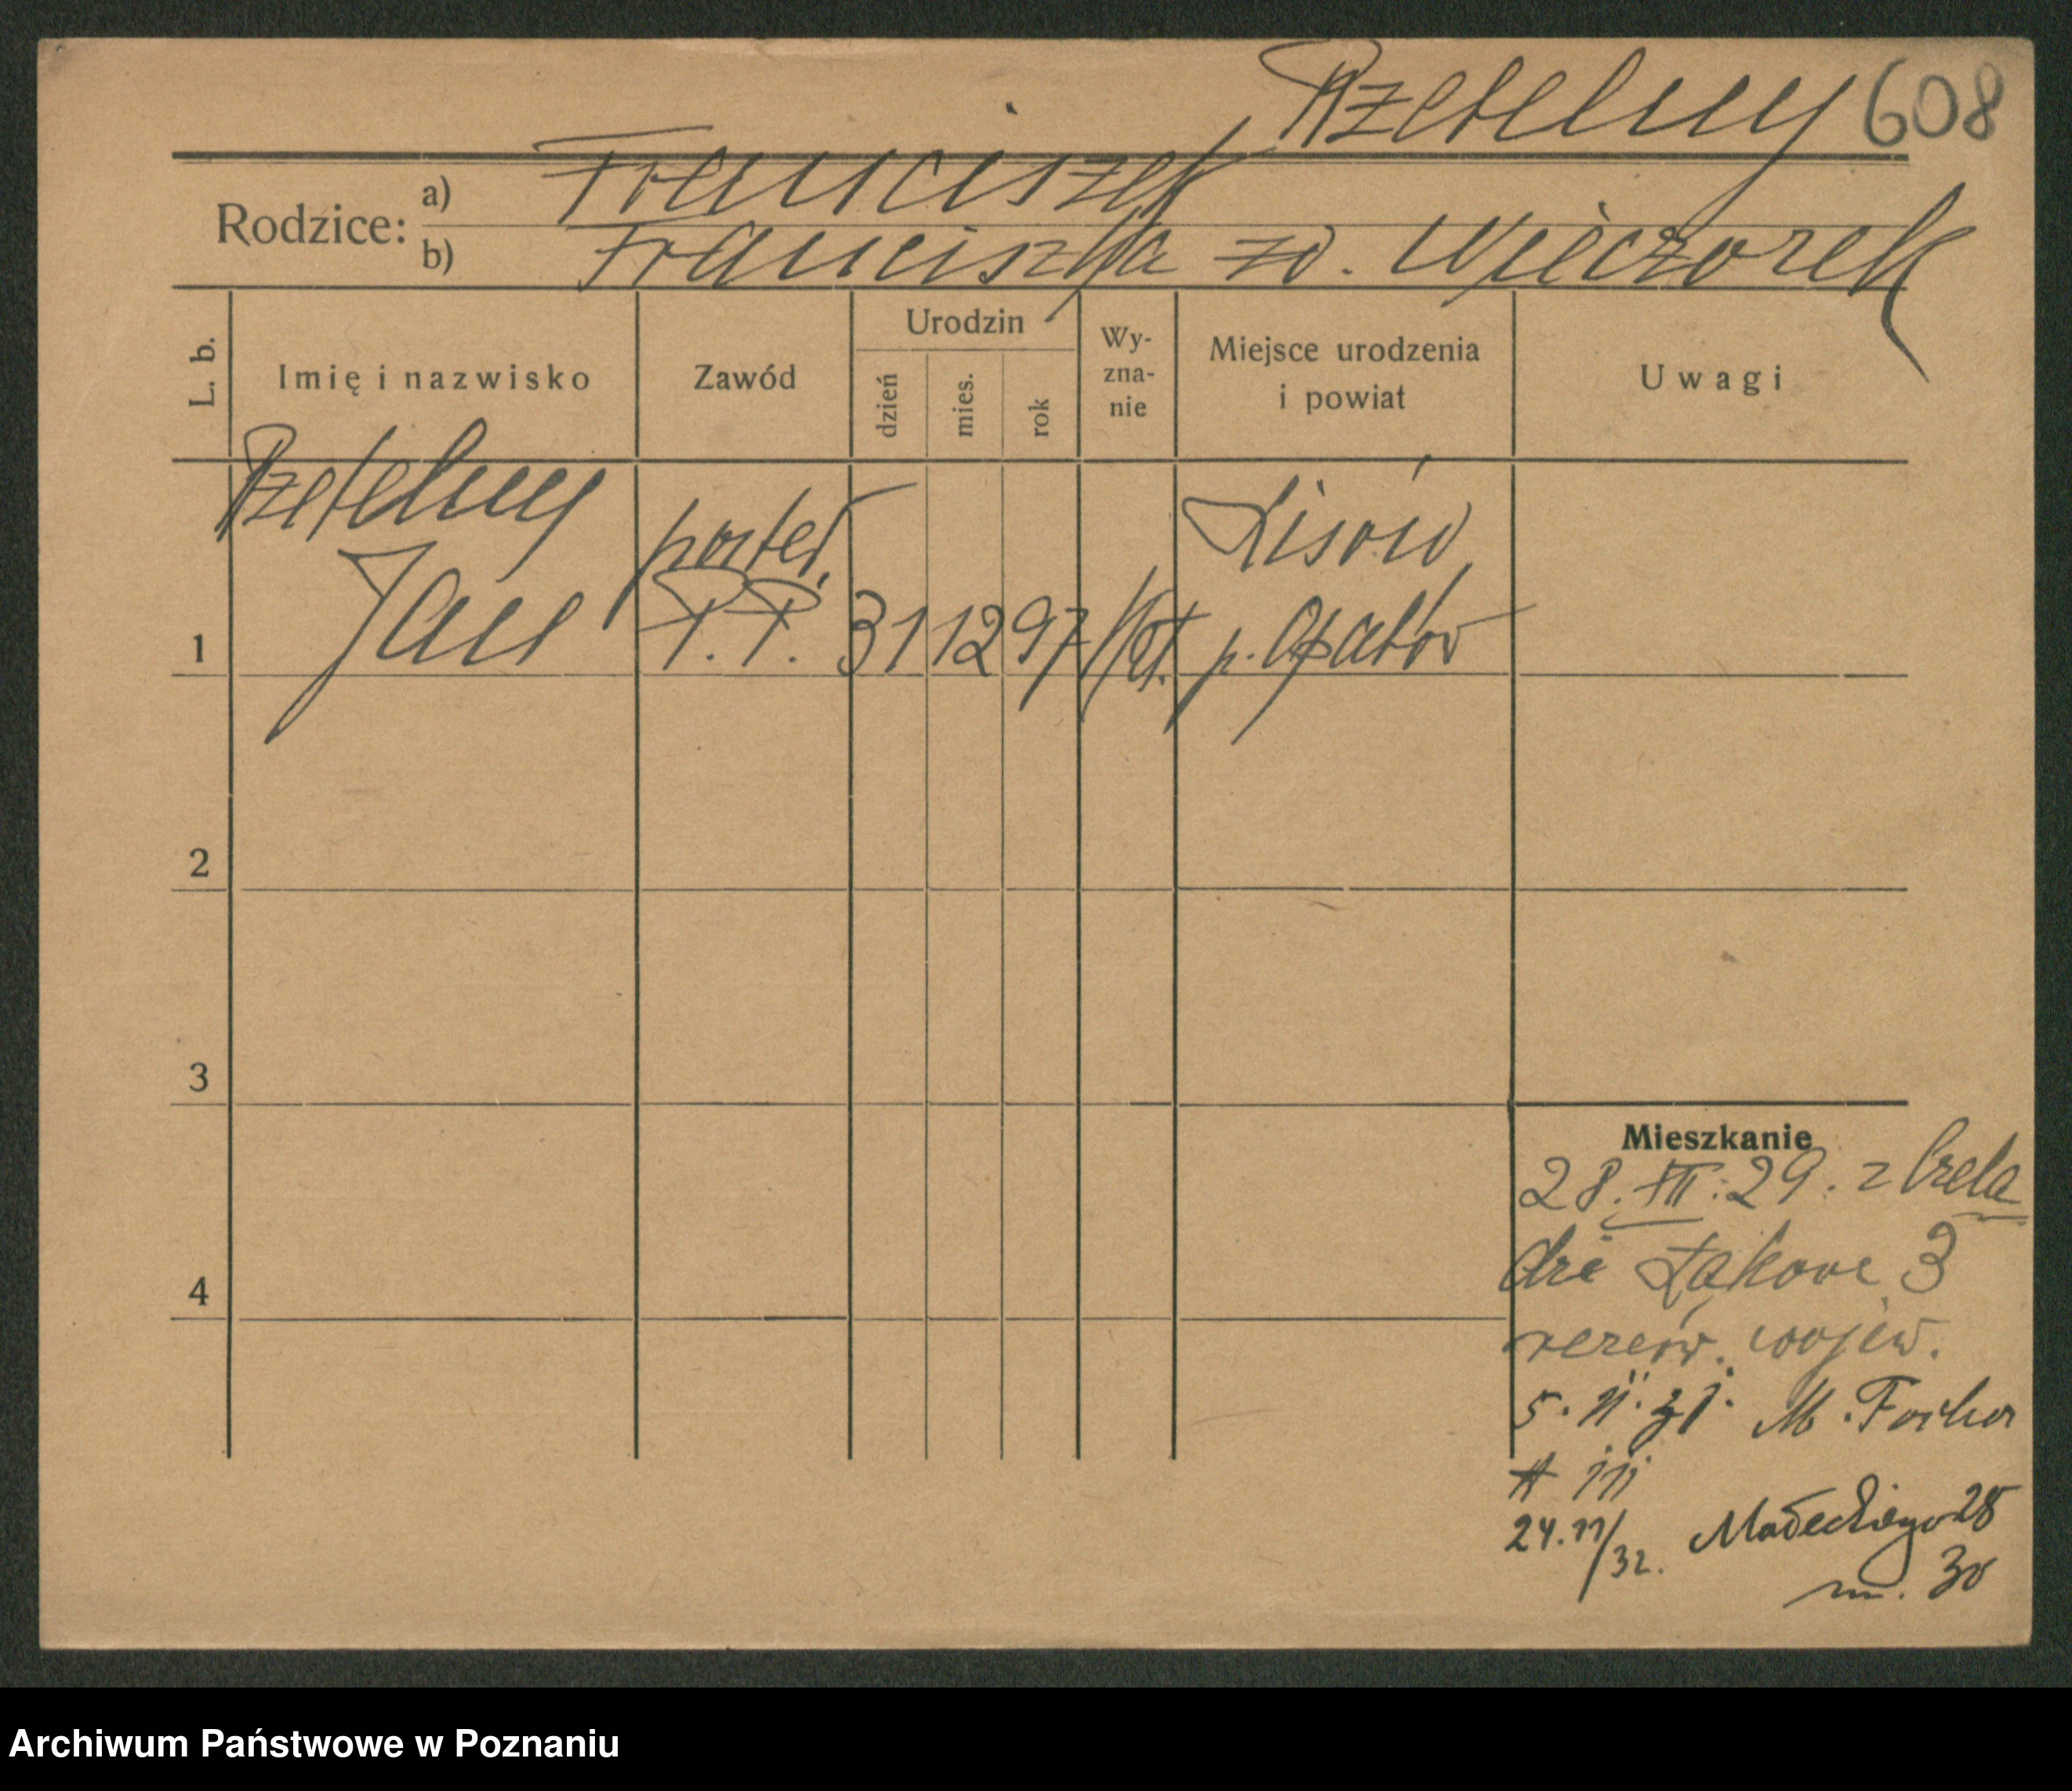 Rzetelny 608
Rodzice: a) Franciszek
b) Franciszka zd. Wieczorek
L. b.
Imię i nazwisko
Zawód
Urodzin
dzień
mies.
rok
Wy-
zna-
nie
Miejsce urodzenia
i powiat
Uwagi
Rzetelny
Jan
poster.
P.P.
31 12 97
kat.
Lisów
p. Opatów
1
2
3
4
Mieszkanie
28. XII. 29. z
Łąkowa 3
rezerw. wojew.
5. II. 31. M. Focha
111
24.11/32. Małeckiego 28
m. 30
Archiwum Państwowe w Poznaniu